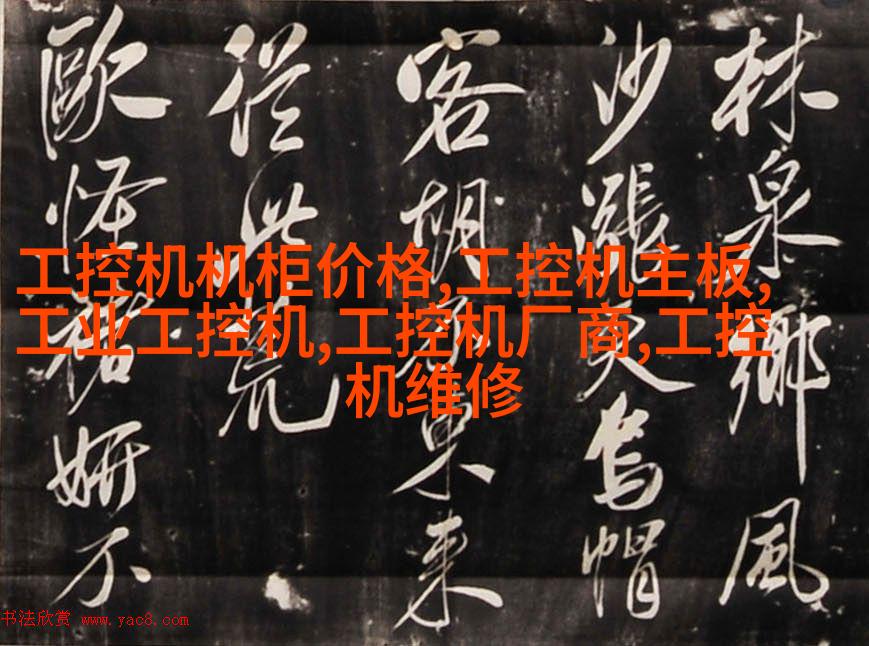 工控机机柜价格,工控机主板,
工业工控机,工控机厂商,工控
机维修
林泉鄉風
沙漲天烏帽
客胡東來
從此荒
歐怪褚妍不
书法欣赏 www.yac8.com